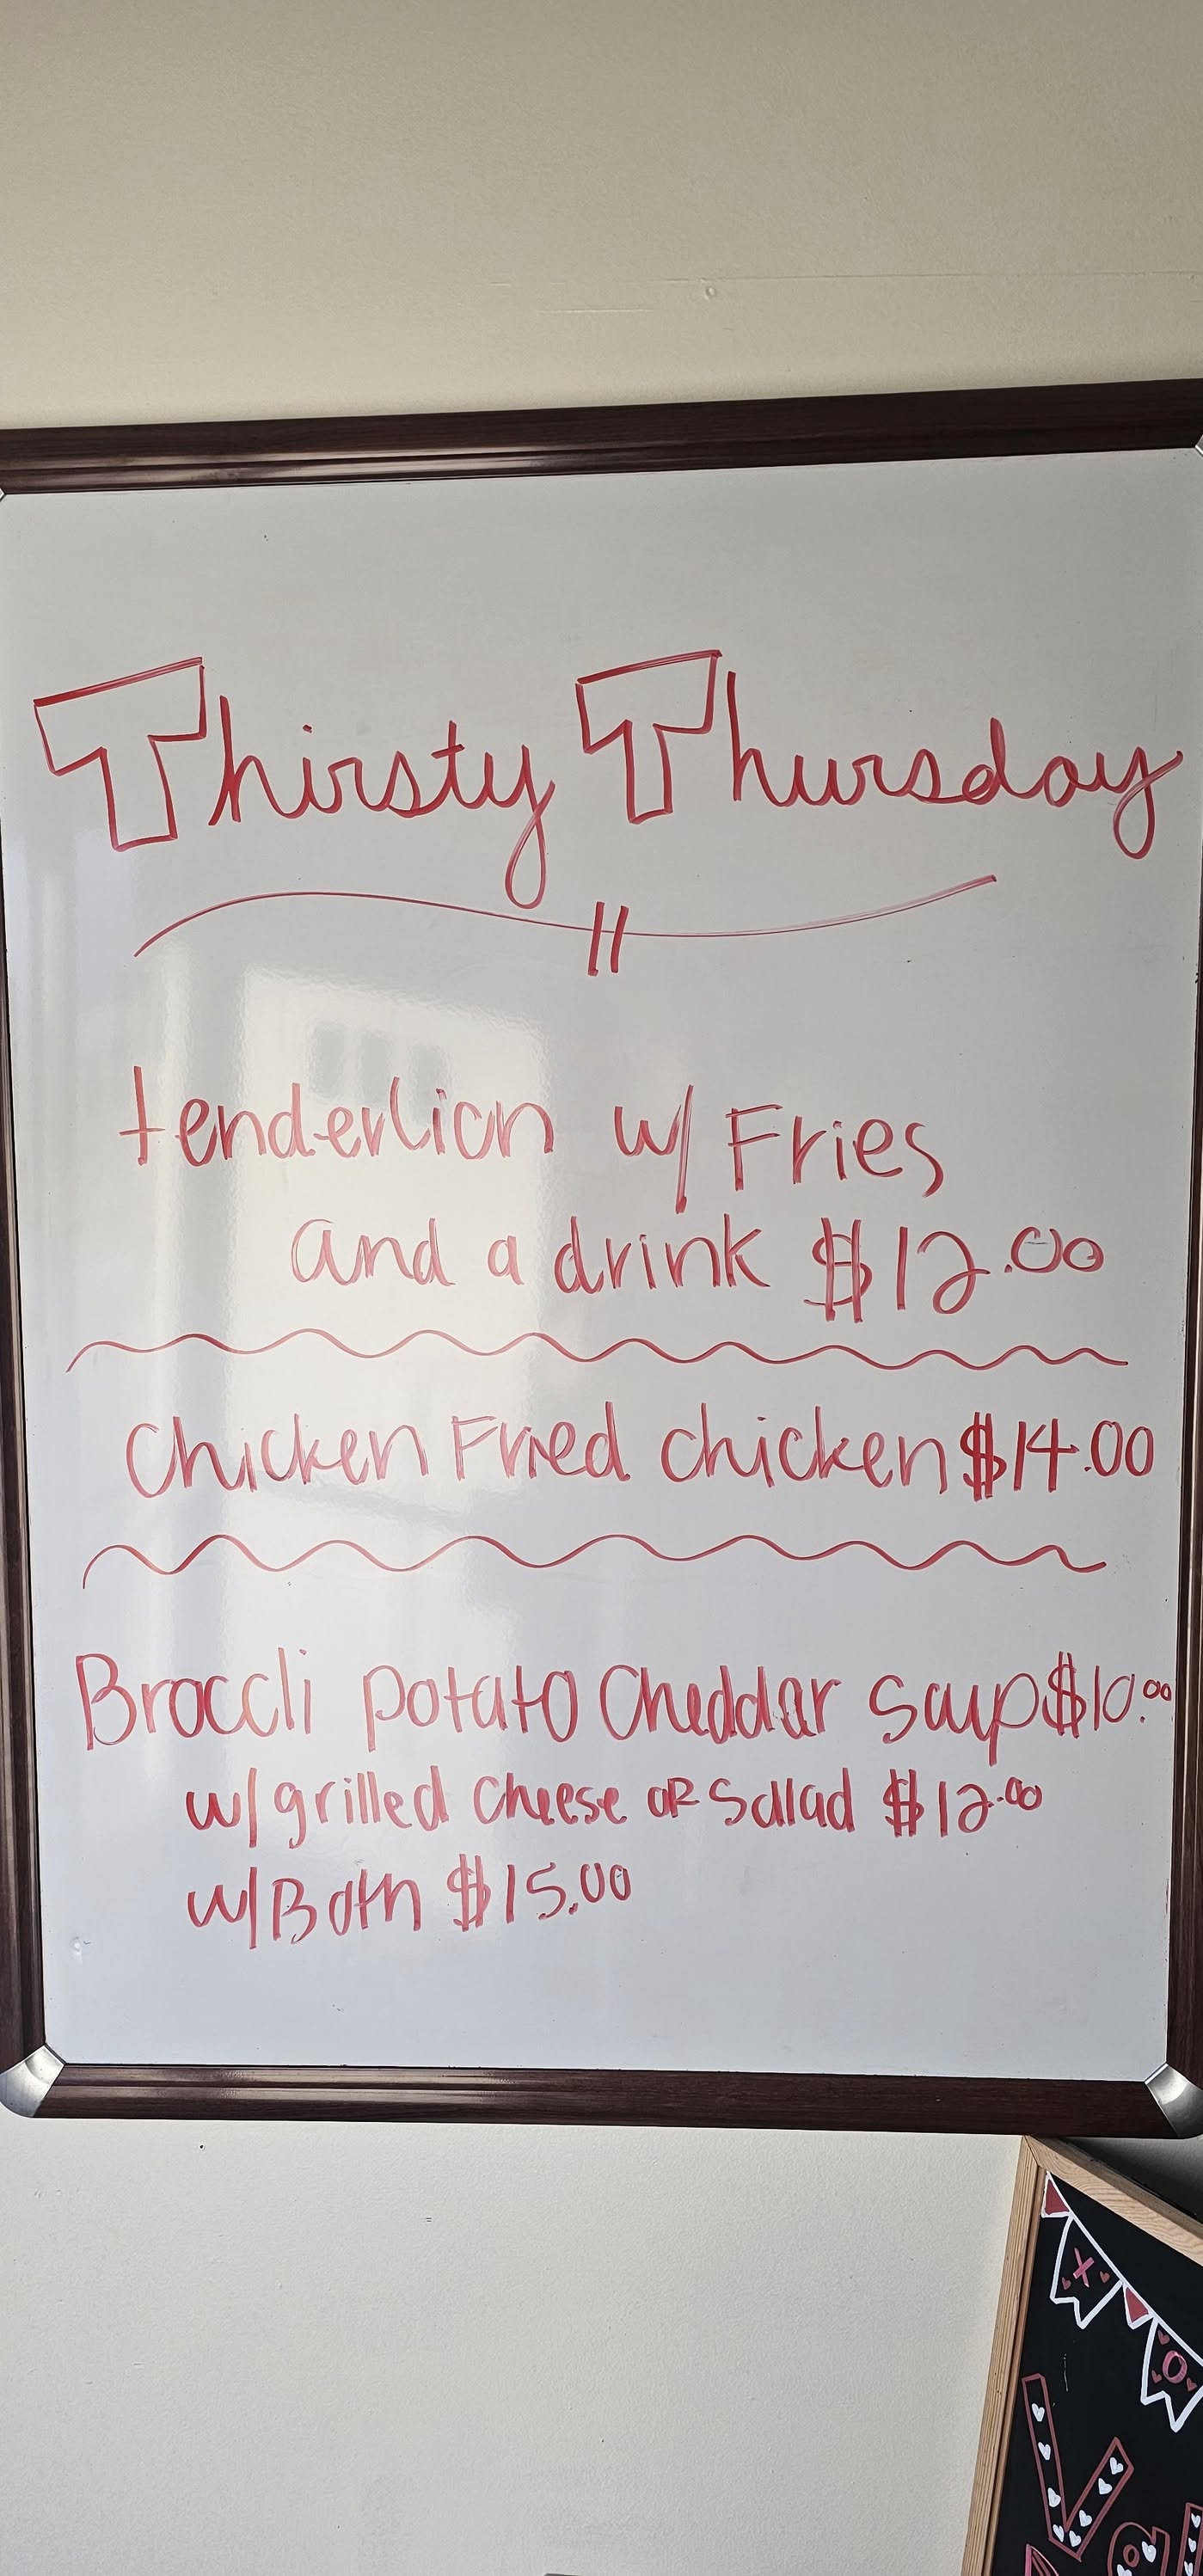 Thirsty Thursday
tenderlion w/ Fries
and a drink $12.00
Chicken Fried chicken $14.00
Broccli potato Cheddar soup $10.00
w/ grilled Cheese OR Sallad $12.00
w/ Both $15.00
X
O